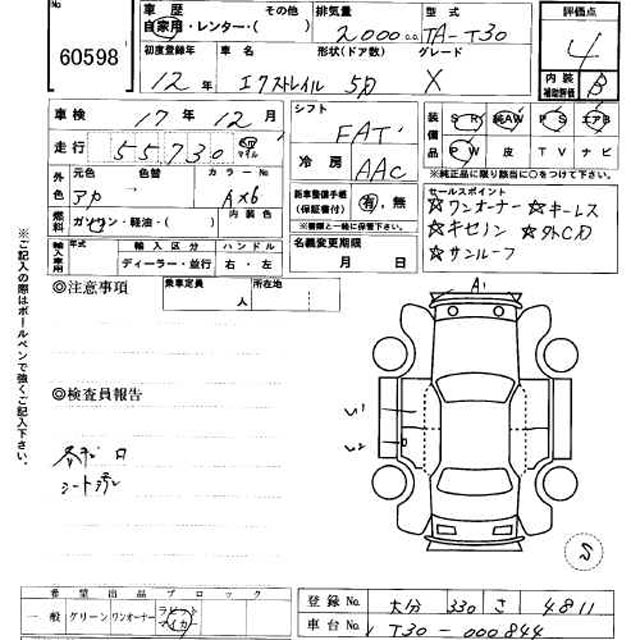 No
60598
車歴 その他 排気量 型式 評価点
自家用・レンター・( ) 2000 c.c. TA-T30 4
初度登録年 車名 形状(ドア数) グレード 内装 補助評価 B
12年 エクストレイル 5D X
車検 17年 12月 シフト 装備品 SR 純AW PS エアB
走行 55730 km マイル FAT PW 皮 TV ナビ
冷房 AAC ※純正品に限り該当に○をつけて下さい。
外色 元色 色替 カラーNo. 新車整備手帳(保証書付) 有・無 セールスポイント
アカ → AX6 ※書類と一緒に保管下さい。 ☆ワンオーナー ☆キーレス
燃料 ガソリン・軽油・( ) 内装色 名義変更期限 ☆キセノン ☆外CD
輸入車用 年式 輸入区分 ハンドル 月 日 ☆サンルーフ
ディーラー・並行 右・左
◎注意事項 乗車定員 人 所在地
A1
◎検査員報告
シート汚
S
※ご記入の際はボールペンで強くご記入下さい。
希望出品ブロック
一般 グリーン ワンオーナー
登録No. 大分 330 さ 4811
車台No. T30-000844